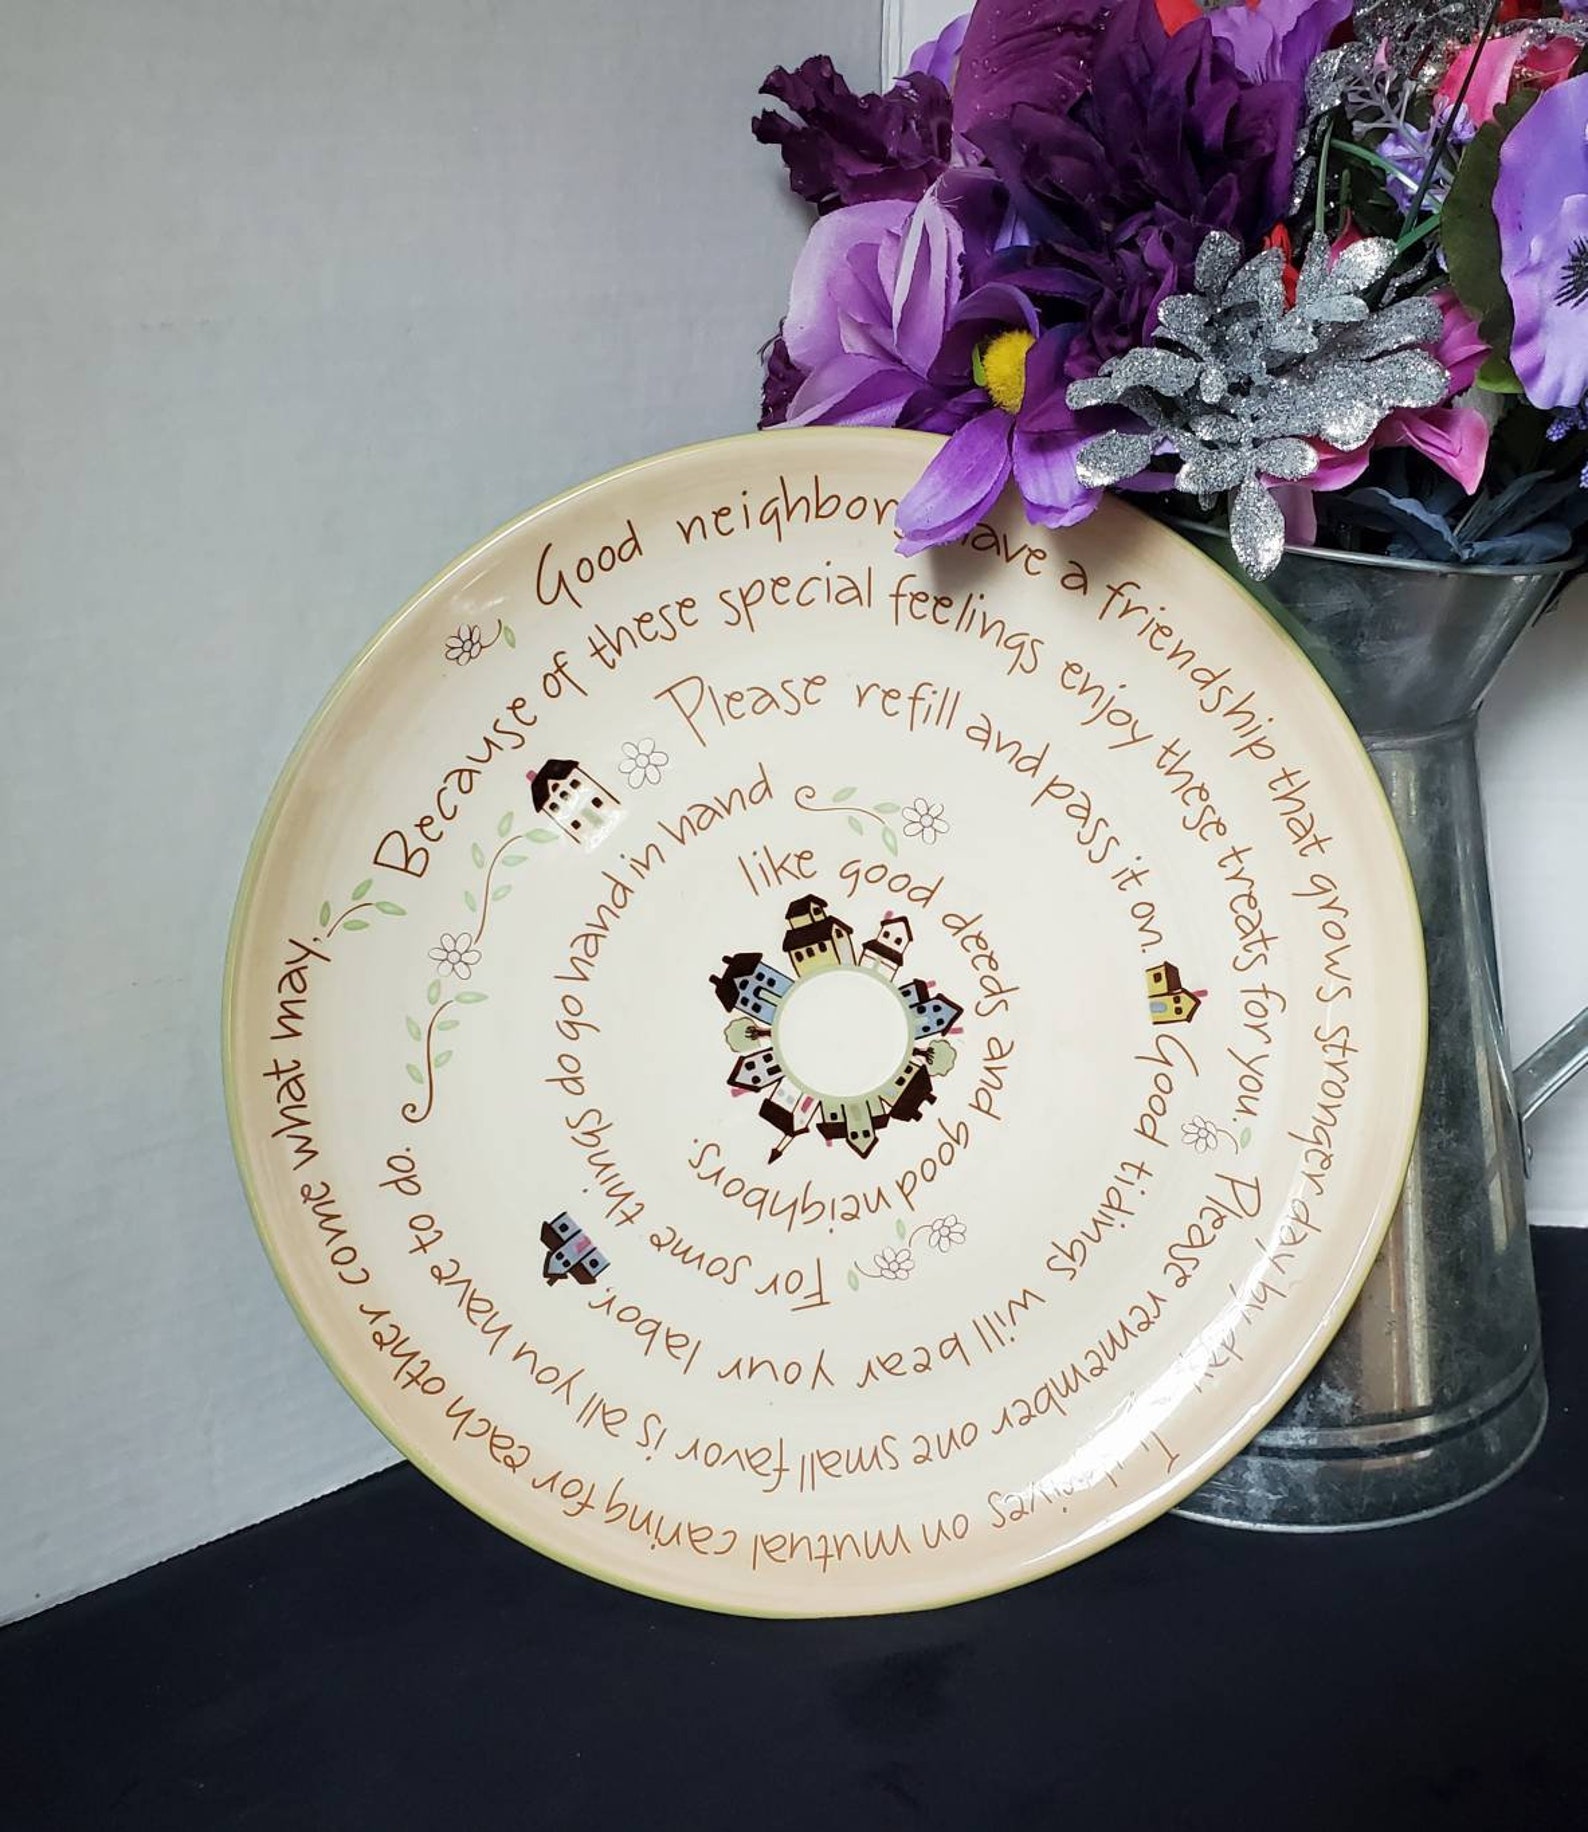 Good neighbors have a friendship that grows stronger day by day. It thrives on mutual caring for each other come what may.
Because of these special feelings enjoy these treats for you.
Please remember one small favor is all you have to do.
Please refill and pass it on.
Good tidings will bear your labor.
For some things do go hand in hand
like good deeds and good neighbors.